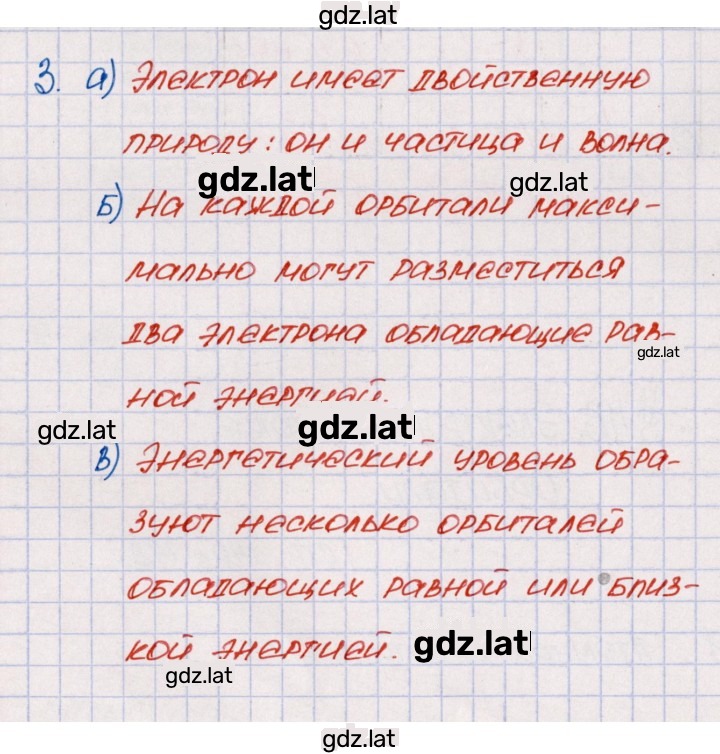 gdz.lat
3. а) Электрон имеет двойственную
природу: он и частица и волна.
gdz.lat
gdz.lat
Б) На каждой орбитали макси-
мально могут разместиться
два электрона обладающие рав-
gdz.lat
ной энергией.
gdz.lat
gdz.lat
в) Энергетический уровень обра-
зуют несколько орбиталей
обладающих равной или близ-
кой энергией.
gdz.lat
gdz.lat
gdz.lat